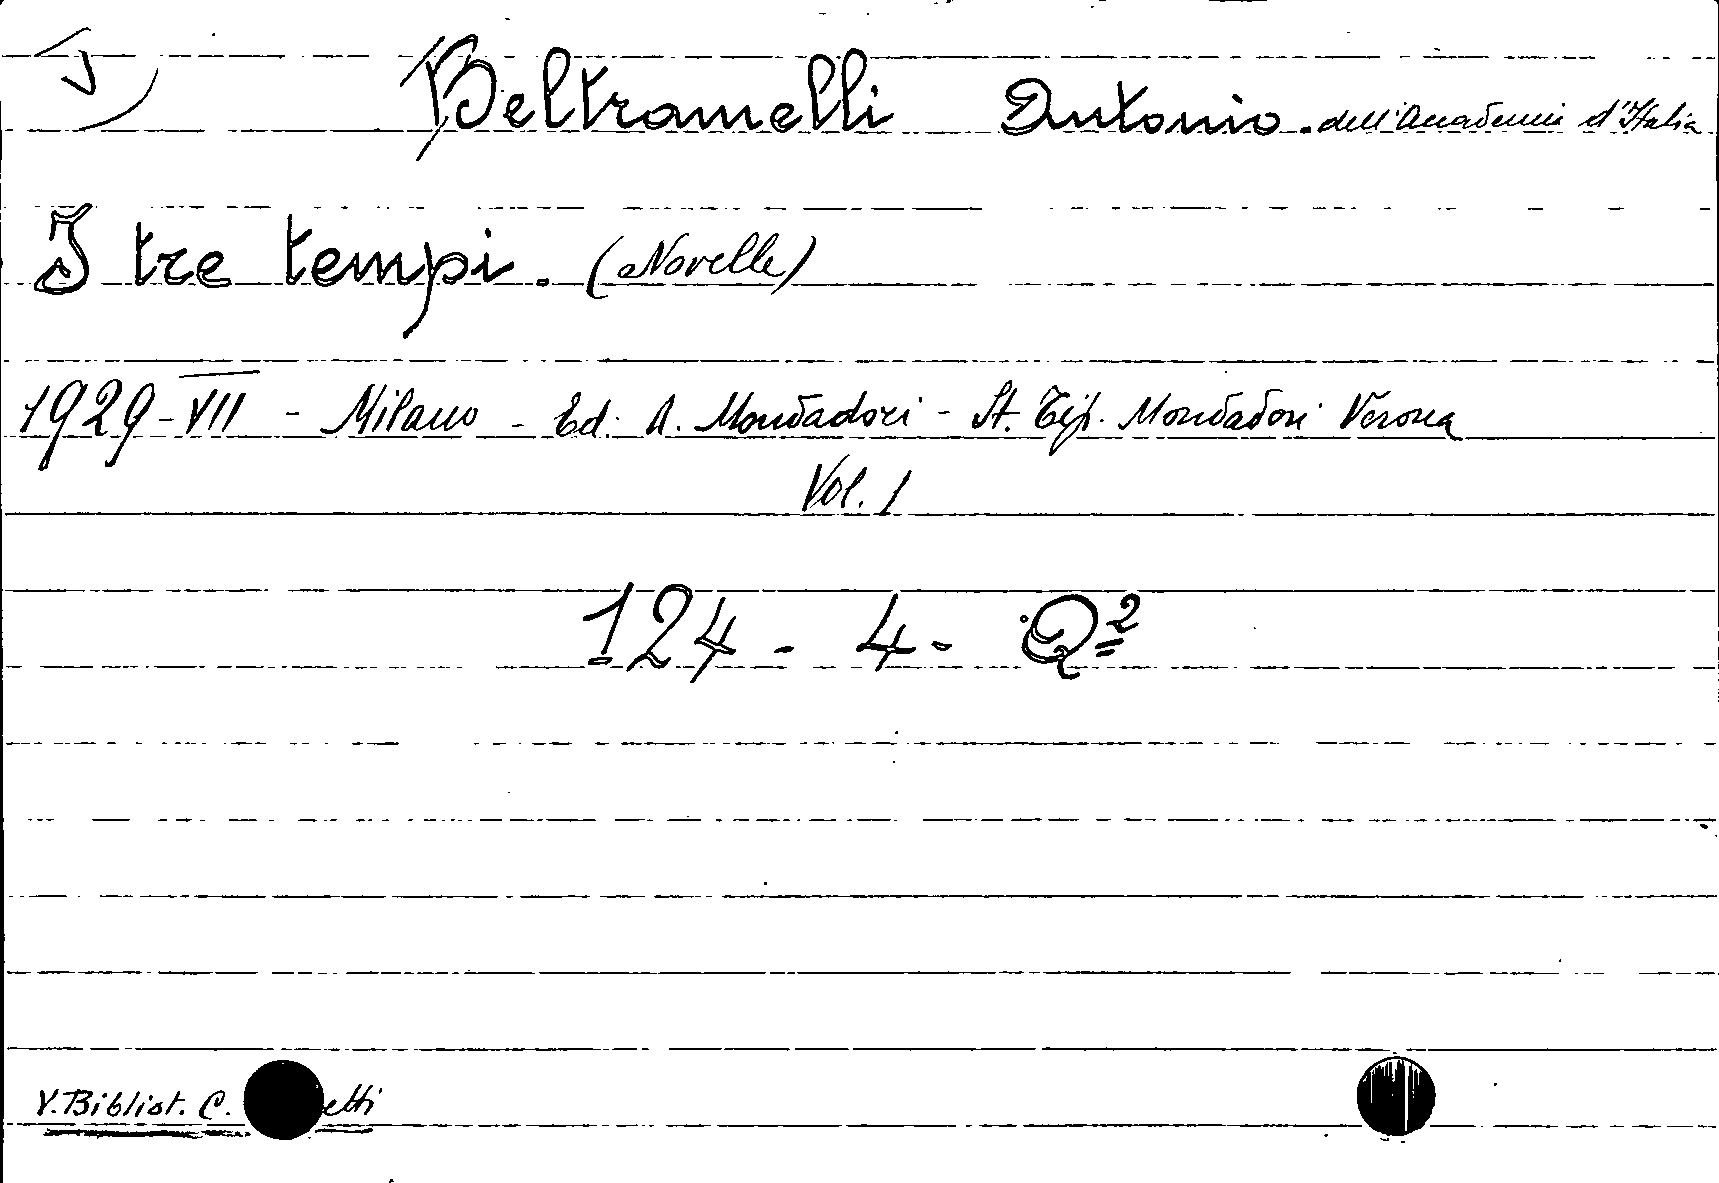 Beltramelli Antonio. dell'Accademia d'Italia
I tre tempi. (Novelle)
1929-VII - Milano - Ed. A. Mondadori - St. Tip. Mondadori Verona
Vol. 1
124 - 4 - Q²
V. Bibliot. C.